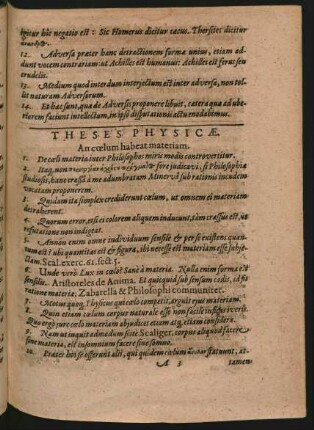 igitur hîc negatio est: Sic Homerus dicitur cæcus. Thersites dicitur
12. Adversa præter hanc detractionem formæ unius, etiam ad
dunt vocem contrariam: ut Achilles est humanus: Achilles est ferus seu
crudelis.
13. Medium quod interdum interjectum est inter adversa, non tol
lit naturam Adversorum.
14. Et hæc sunt, quæ de Adversis proponere libuit, cætera quæ ad ube
riorem faciunt intellectum, in ipsa disputationis actu modabimus.
THESES PHYSICÆ.
An cœlum habeat materiam.
1. De cœli materia inter Philosophos miris modis controvertitur.
2. Itaq, non fore judicavi, si Philosophiæ
studiosis, hanc crassâ à me adumbratam Minervâ sub rationis incudem
vocatam proponerem.
3. Quidam ita simplex crediderunt cælum, ut omnem ei materiam
detraherent.
4. Quorum error, etsi ex colorem aliquem inducunt, tam crassus est, ut
refutatione non indigeat.
5. Annon enim omne individuum sensile & per se existens quan
tum est? ubi quantitas est & figura, ibi necesse est materiam esse subje
ctam. Scal. exerc. 61. sect. 5.
6. Unde verò Lux in cœlo? Sanè à materia. Nulla enim forma est
sensilis. Aristoteles de Anima. Et quicquid sub sensum cadit, id fit
ratione materiæ. Zabarella & Philosophi communiter.
7. Motus quin, Physicus qui cœlo competit, arguit ejus materiam.
8. Quin etiam cœlum corpus naturale esse non facile inficias iverit.
Qui ergò jure cœlo materiam abjudicet etiam atq, etiam considera.
9. Nam ut inquit admodum scitè Scaliger, corpus aliquod facere
sine materia, est insomnium facere sine somno.
10. Præter hos se offerunt alii, qui quidem cœlum statuunt, at-
A 3 tamen